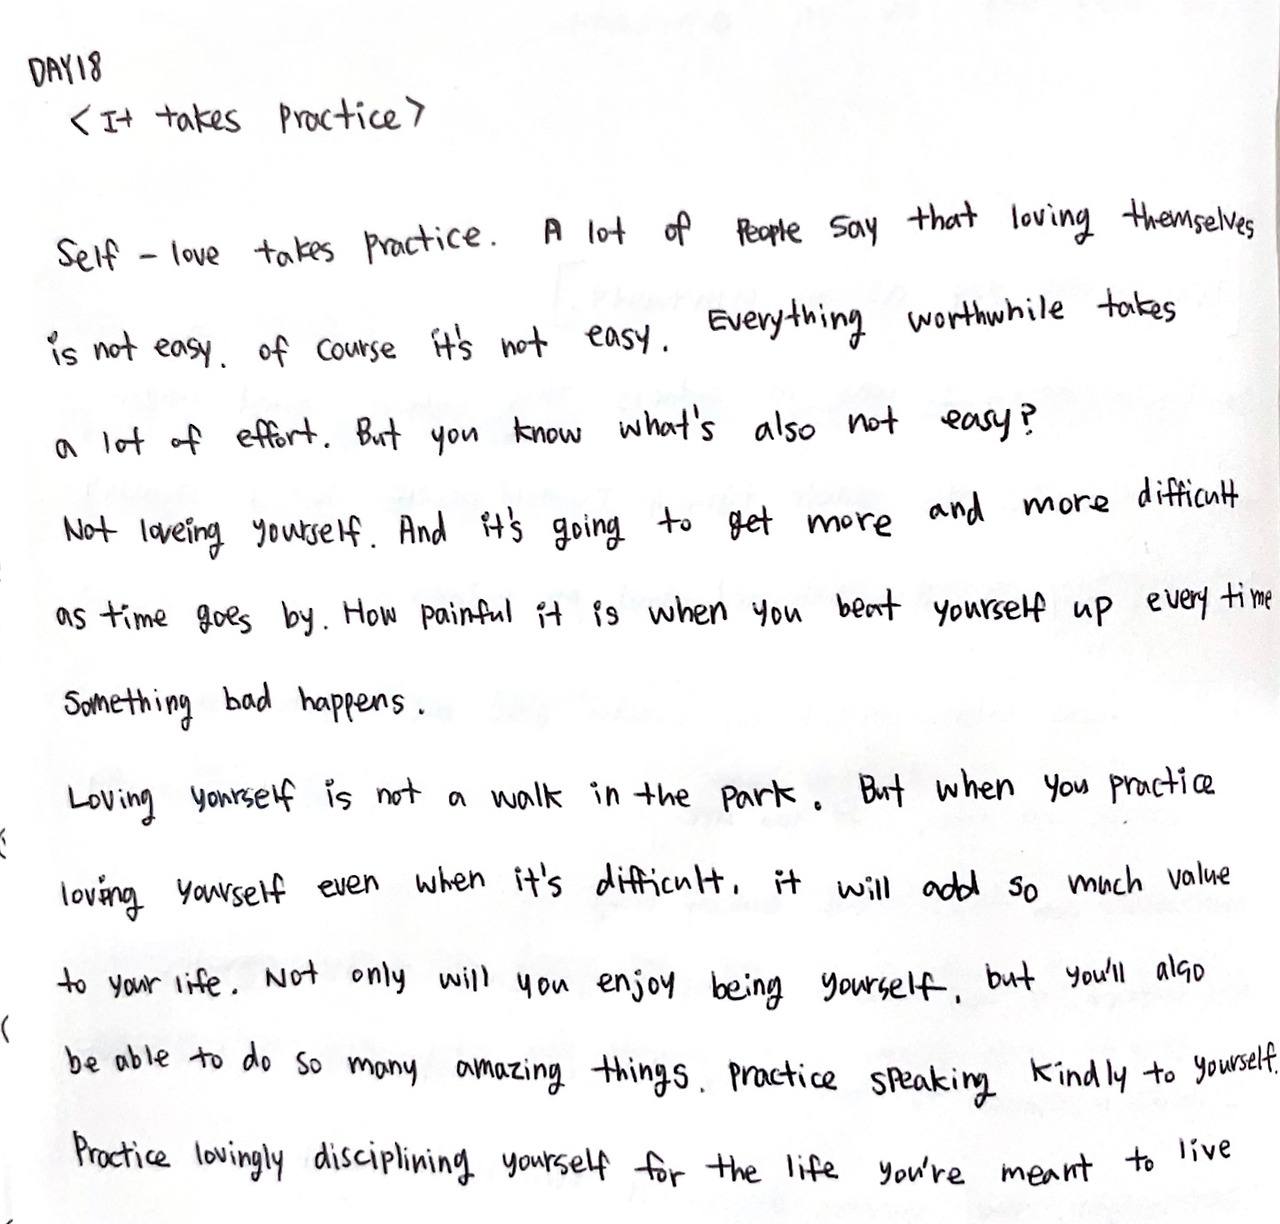 DAY18
<It takes practice>
Self-love takes practice. A lot of people say that loving themselves
is not easy. of course it's not easy. Everything worthwhile takes
a lot of effort. But you know what's also not easy?
Not loveing yourself. And it's going to get more and more difficult
as time goes by. How painful it is when you beat yourself up every time
Something bad happens.
Loving yourself is not a walk in the park. But when you practice
loving yourself even when it's difficult, it will add so much value
to your life. Not only will you enjoy being yourself, but you'll also
be able to do so many amazing things. practice speaking kindly to yourself.
Practice lovingly disciplining yourself for the life you're meant to live